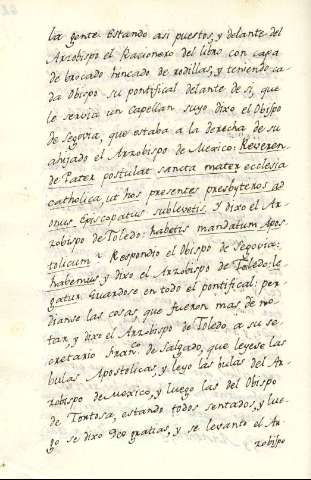 la gente. Estando asi puestos, y delante del
Arzobispo el Racionero del libro con capa
de brocado hincado de rodillas, y teniendo ca-
da Obispo su pontifical delante de si, que
le servia un Capellan suyo dixo el Obispo
de Segovia, que estaba a la derecha de su
ahijado el Arzobispo de Mexico: Reveren-
de Pater postulat sancta mater ecclesia
catholica, ut hos presentes presbyteros ad
onus Episcopatus sublevetis. Y dixo el Ar-
zobispo de Toledo: habetis mandatum Apos-
tolicum? Respondio el Obispo de Segovia:
habemus y dixo el Arzobispo de Toledo: le-
gatur. Guardose en todo el pontifical: per-
dianse las cosas, que fueron mas de no-
tar, y dixo el Arzobispo de Toledo, a su se-
cretario Fran.co de Salgado, que leyese las
bulas Apostolicas, y leyo las bulas del Ar-
zobispo de Mexico, y luego las del Obispo
de Tortosa, estando todos sentados, y lue-
go se dixo Deo gratias, y se levanto el Ar-
zobispo